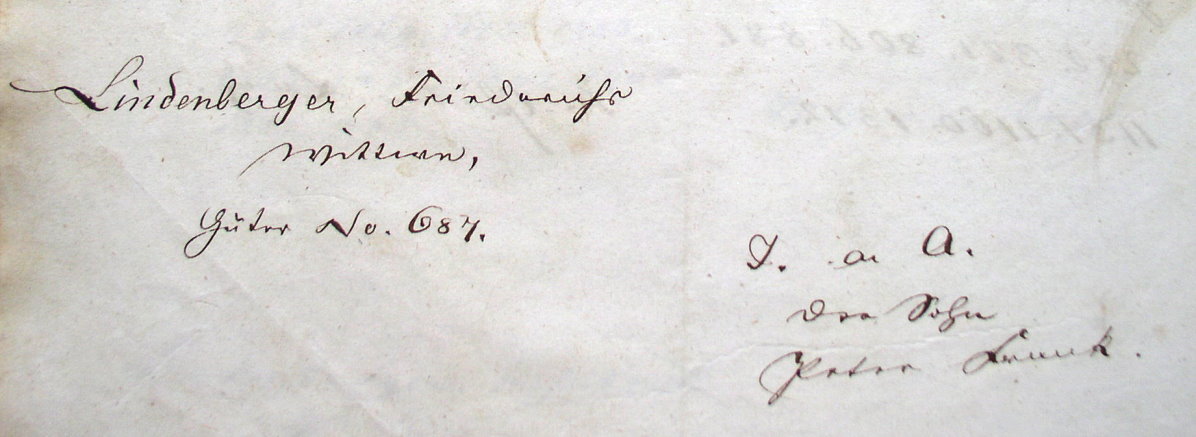 Lindenberger, Friedrichs
Wittwe,
Güter No. 687.
T. a. A.
der Sohn
Peter Frank.